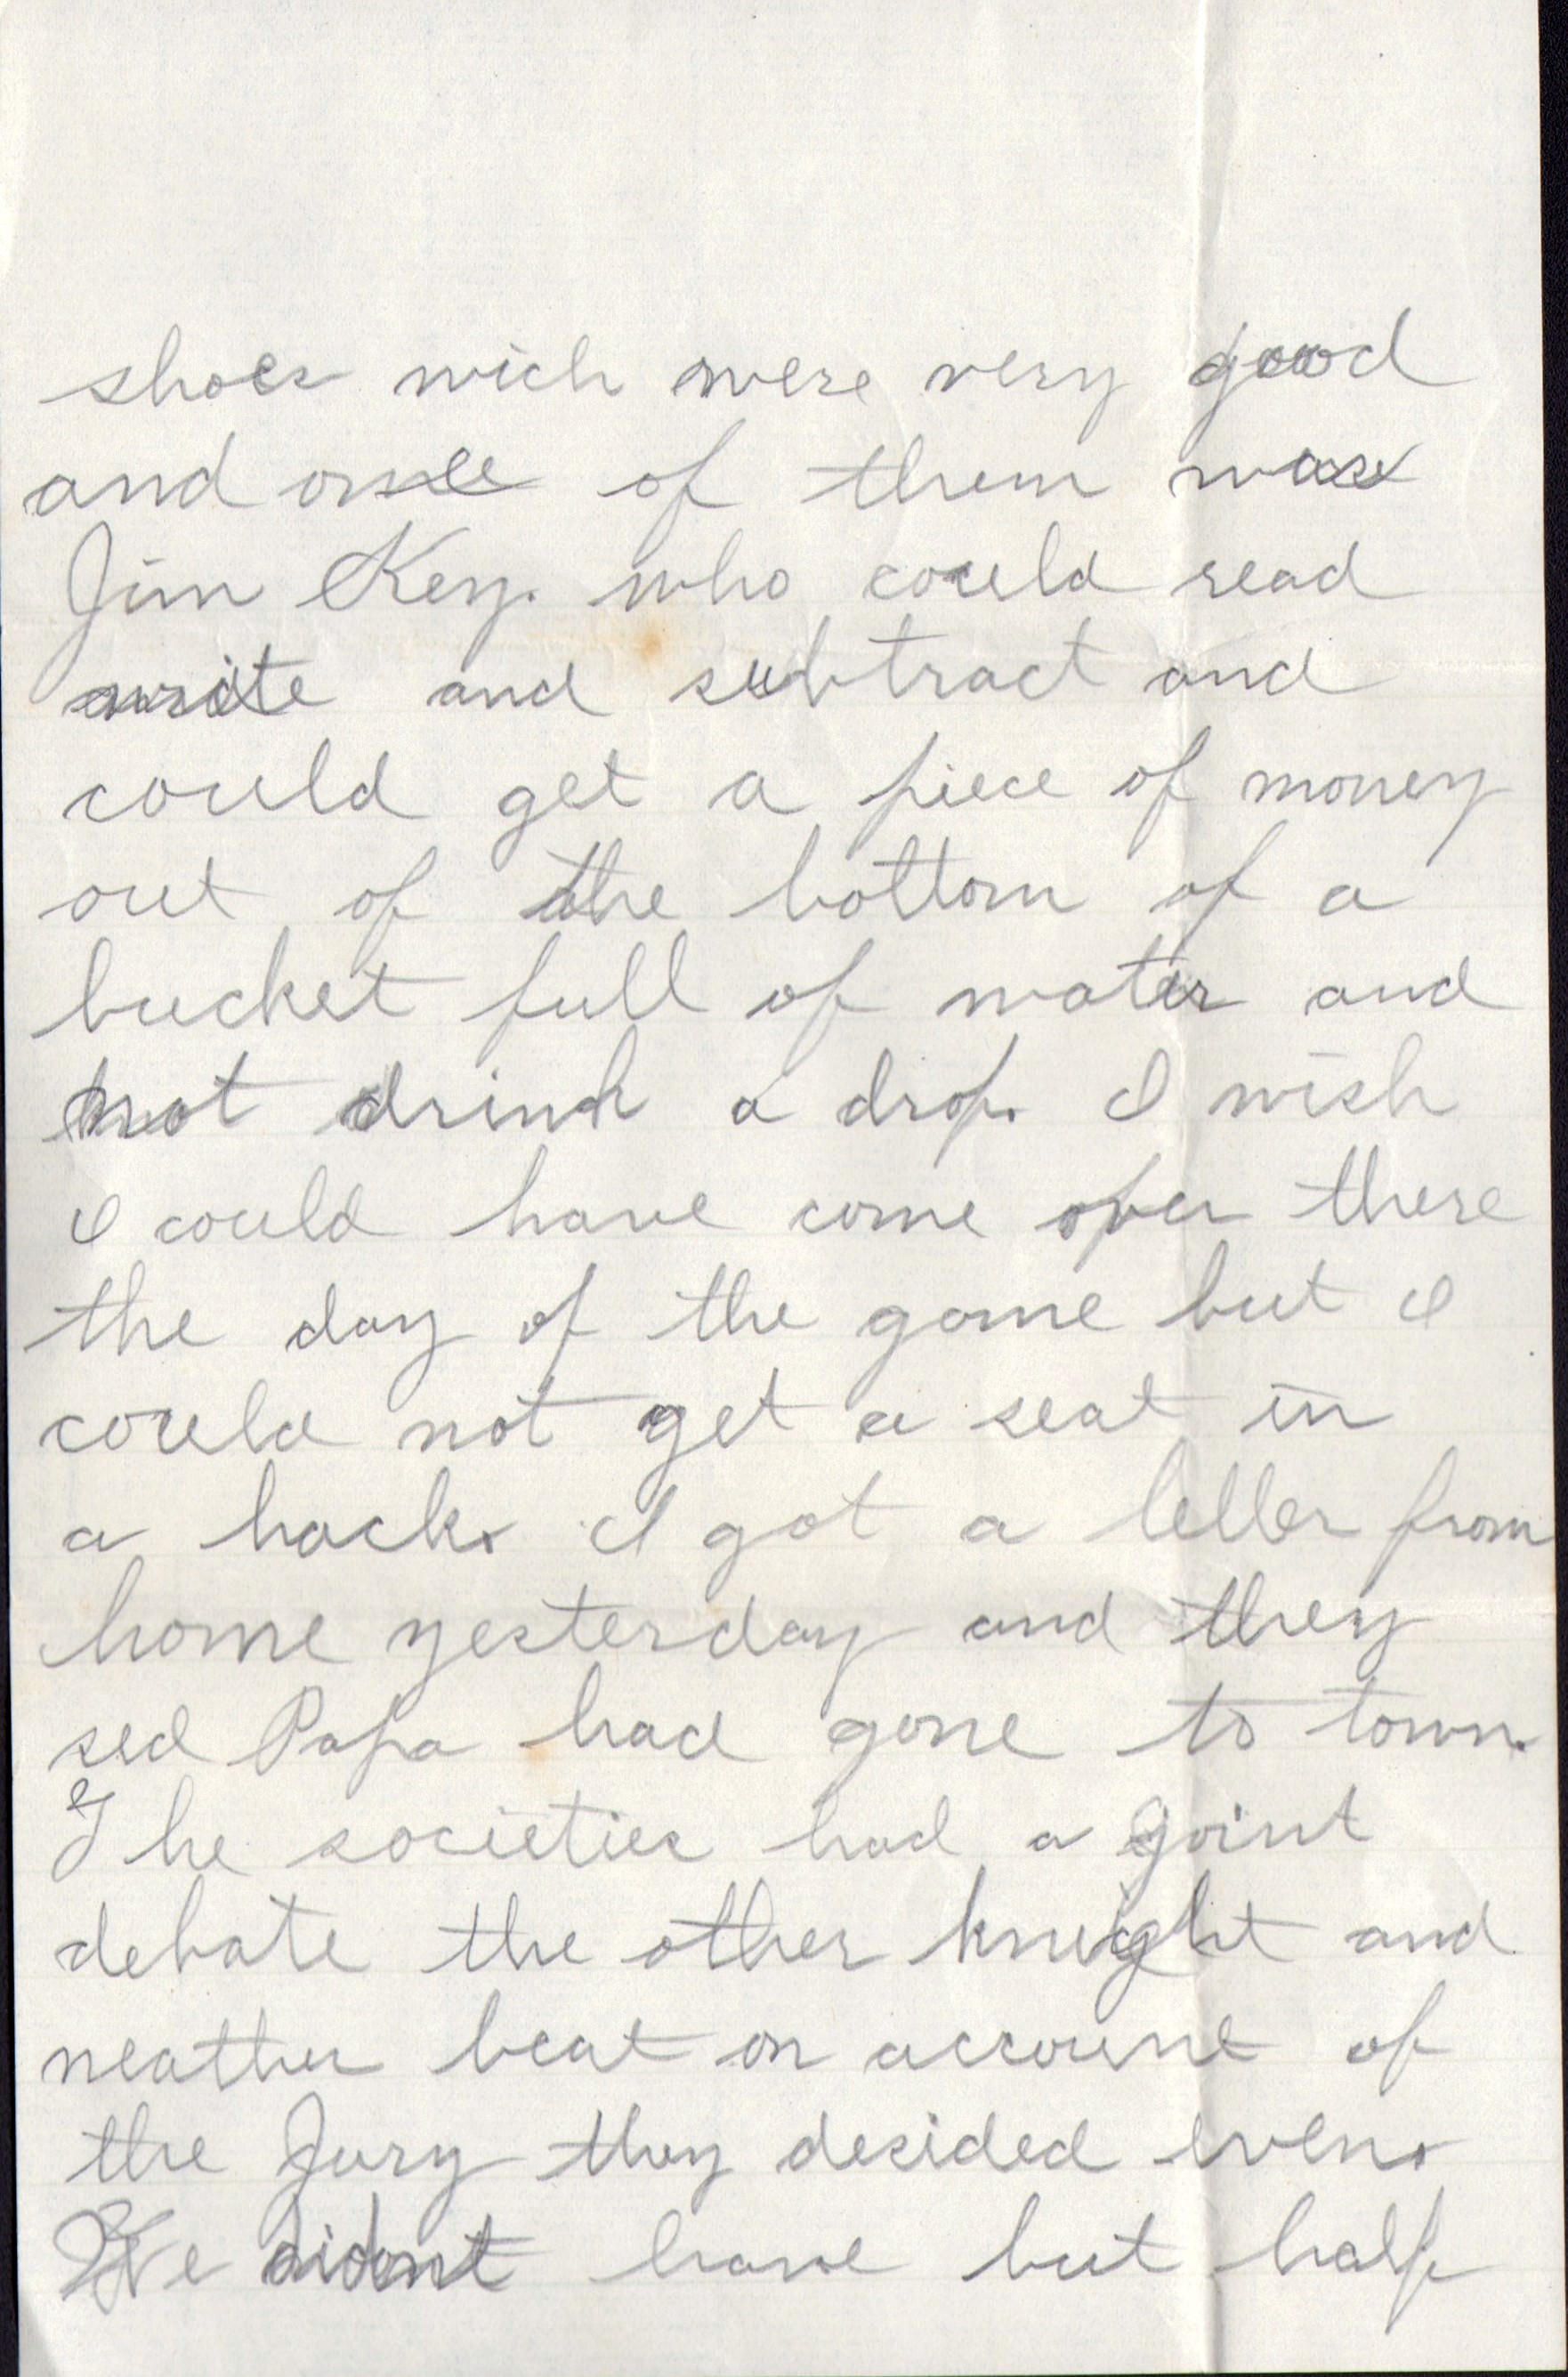 shoes wich were very good
and one of them was
Jim Key. who could read
write and subtract and
could get a piece of money
out of the bottom of a
bucket full of water and
not drink a drop. I wish
I could have come over there
the day of the game but I
could not get a seat in
a hack. I got a letter from
home yesterday and they
sed Papa had gone to town.
The societies had a joint
debate the other knight and
neather beat on account of
the Jury they desided even.
We dident have but half